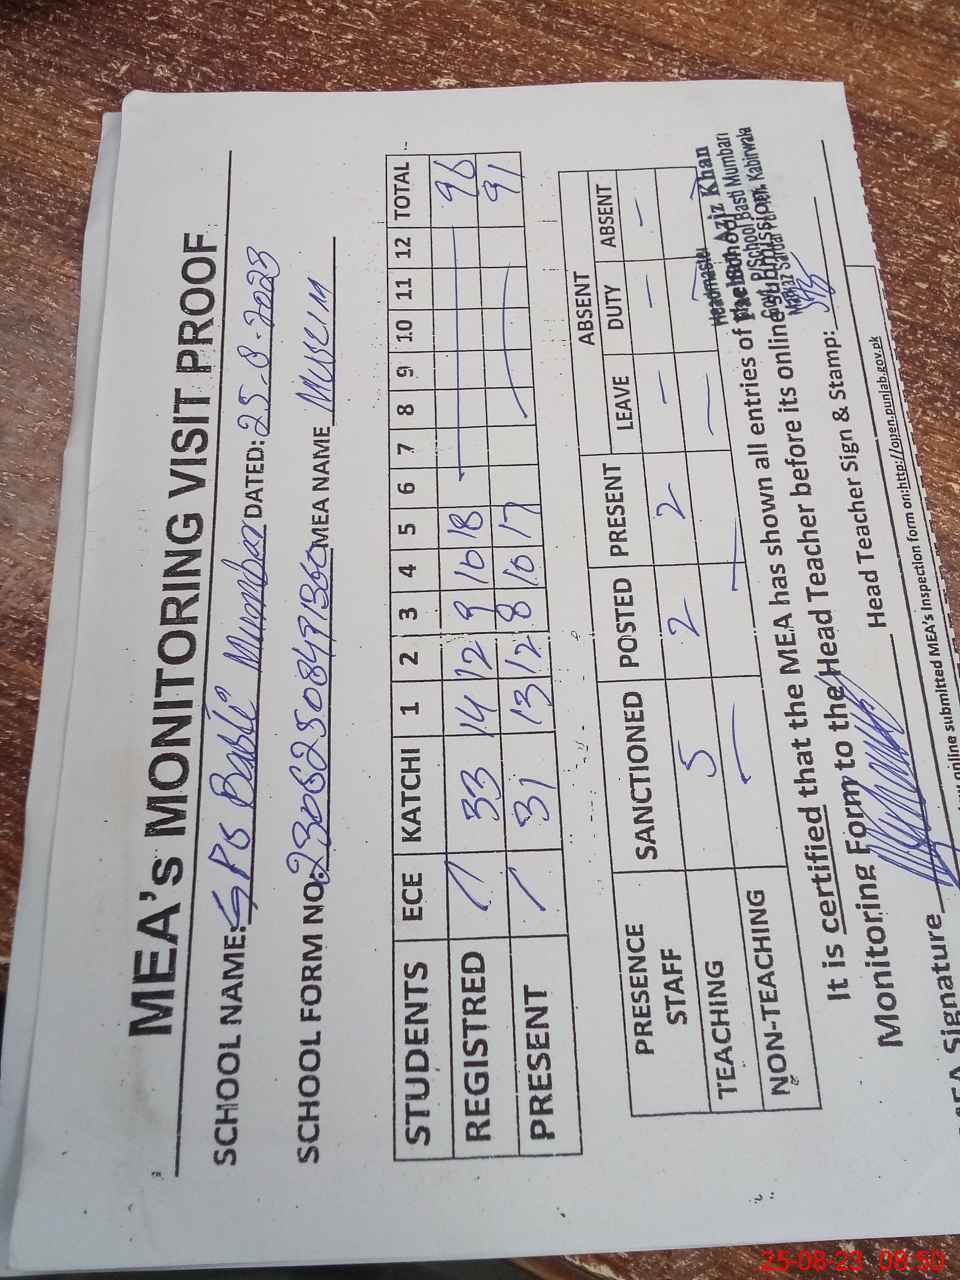 MEA's MONITORING VISIT PROOF
SCHOOL NAME: GPS Basti Mumbar DATED: 25-8-2023
SCHOOL FORM NO: MEA NAME
STUDENTS ECE KATCHI 1 2 3 4 5 6 7 8 9 10 11 12 TOTAL
REGISTRED 33 14 12 9 10 18 96
PRESENT 31 13 12 8 10 17 91
PRESENCE STAFF SANCTIONED POSTED PRESENT ABSENT
LEAVE DUTY ABSENT
TEACHING 5 2 2 - - -
NON-TEACHING
It is certified that the MEA has shown all entries of
Monitoring Form to the Head Teacher before its online submission.
Headmaster
Aziz Khan
P/School Basti Mumbari
Kabirwala
Head Teacher Sign & Stamp:
MEA Signature
online submitted MEA's Inspection form on:http://open.punjab.gov.pk
25-08-23 08:50